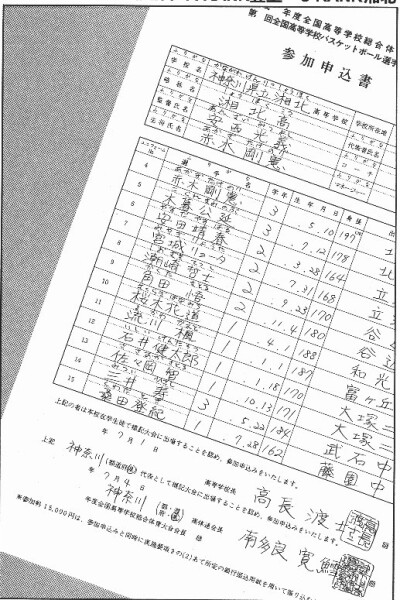 年度全国高等学校総合体
第 回全国高等学校バスケットボール選手
参加申込書
学校名 神奈川県立湘北高等学校 学校所在地
湘北高 代表者氏名
監督氏名 安西光義 コーチ
主将氏名 赤木剛憲 マネージャー
ユニフォームNo. 選手氏名 学年 生年月日 身長
4 赤木剛憲 3 5.10 197 北
5 木暮公延 3 7.12 178 北
6 安田靖春 2 3.28 164 立
7 宮城リョータ 2 7.31 168 立
8 潮崎哲士 2 9.23 170 谷
9 角田悟 2 11.4 180 谷
10 桜木花道 1 4.1 188 和光
11 流川楓 1 1.1 187 富ヶ丘
12 石井健太郎 1 1.18 170 大塚
13 佐々岡智 1 10.13 171 大塚
14 三井寿 3 5.22 184 武石中
15 桑田登紀 1 7.28 162 藤園中
上記の者は本校在学生徒で標記大会に出場することを認め、参加申込みをいたします。
年7月1日
高等学校長 高長渡士 印
上記 神奈川(都道府県)代表として標記大会に出場することを認め、参加申込みをいたします。
年7月4日
神奈川(都道府県)高体連会長 南多良寛 印
年度全国高等学校総合体育大会会長 様
※参加料15,000円は、参加申込みと同時に実施要項さの(2)あて所定の銀行振込用紙を用いて振り込